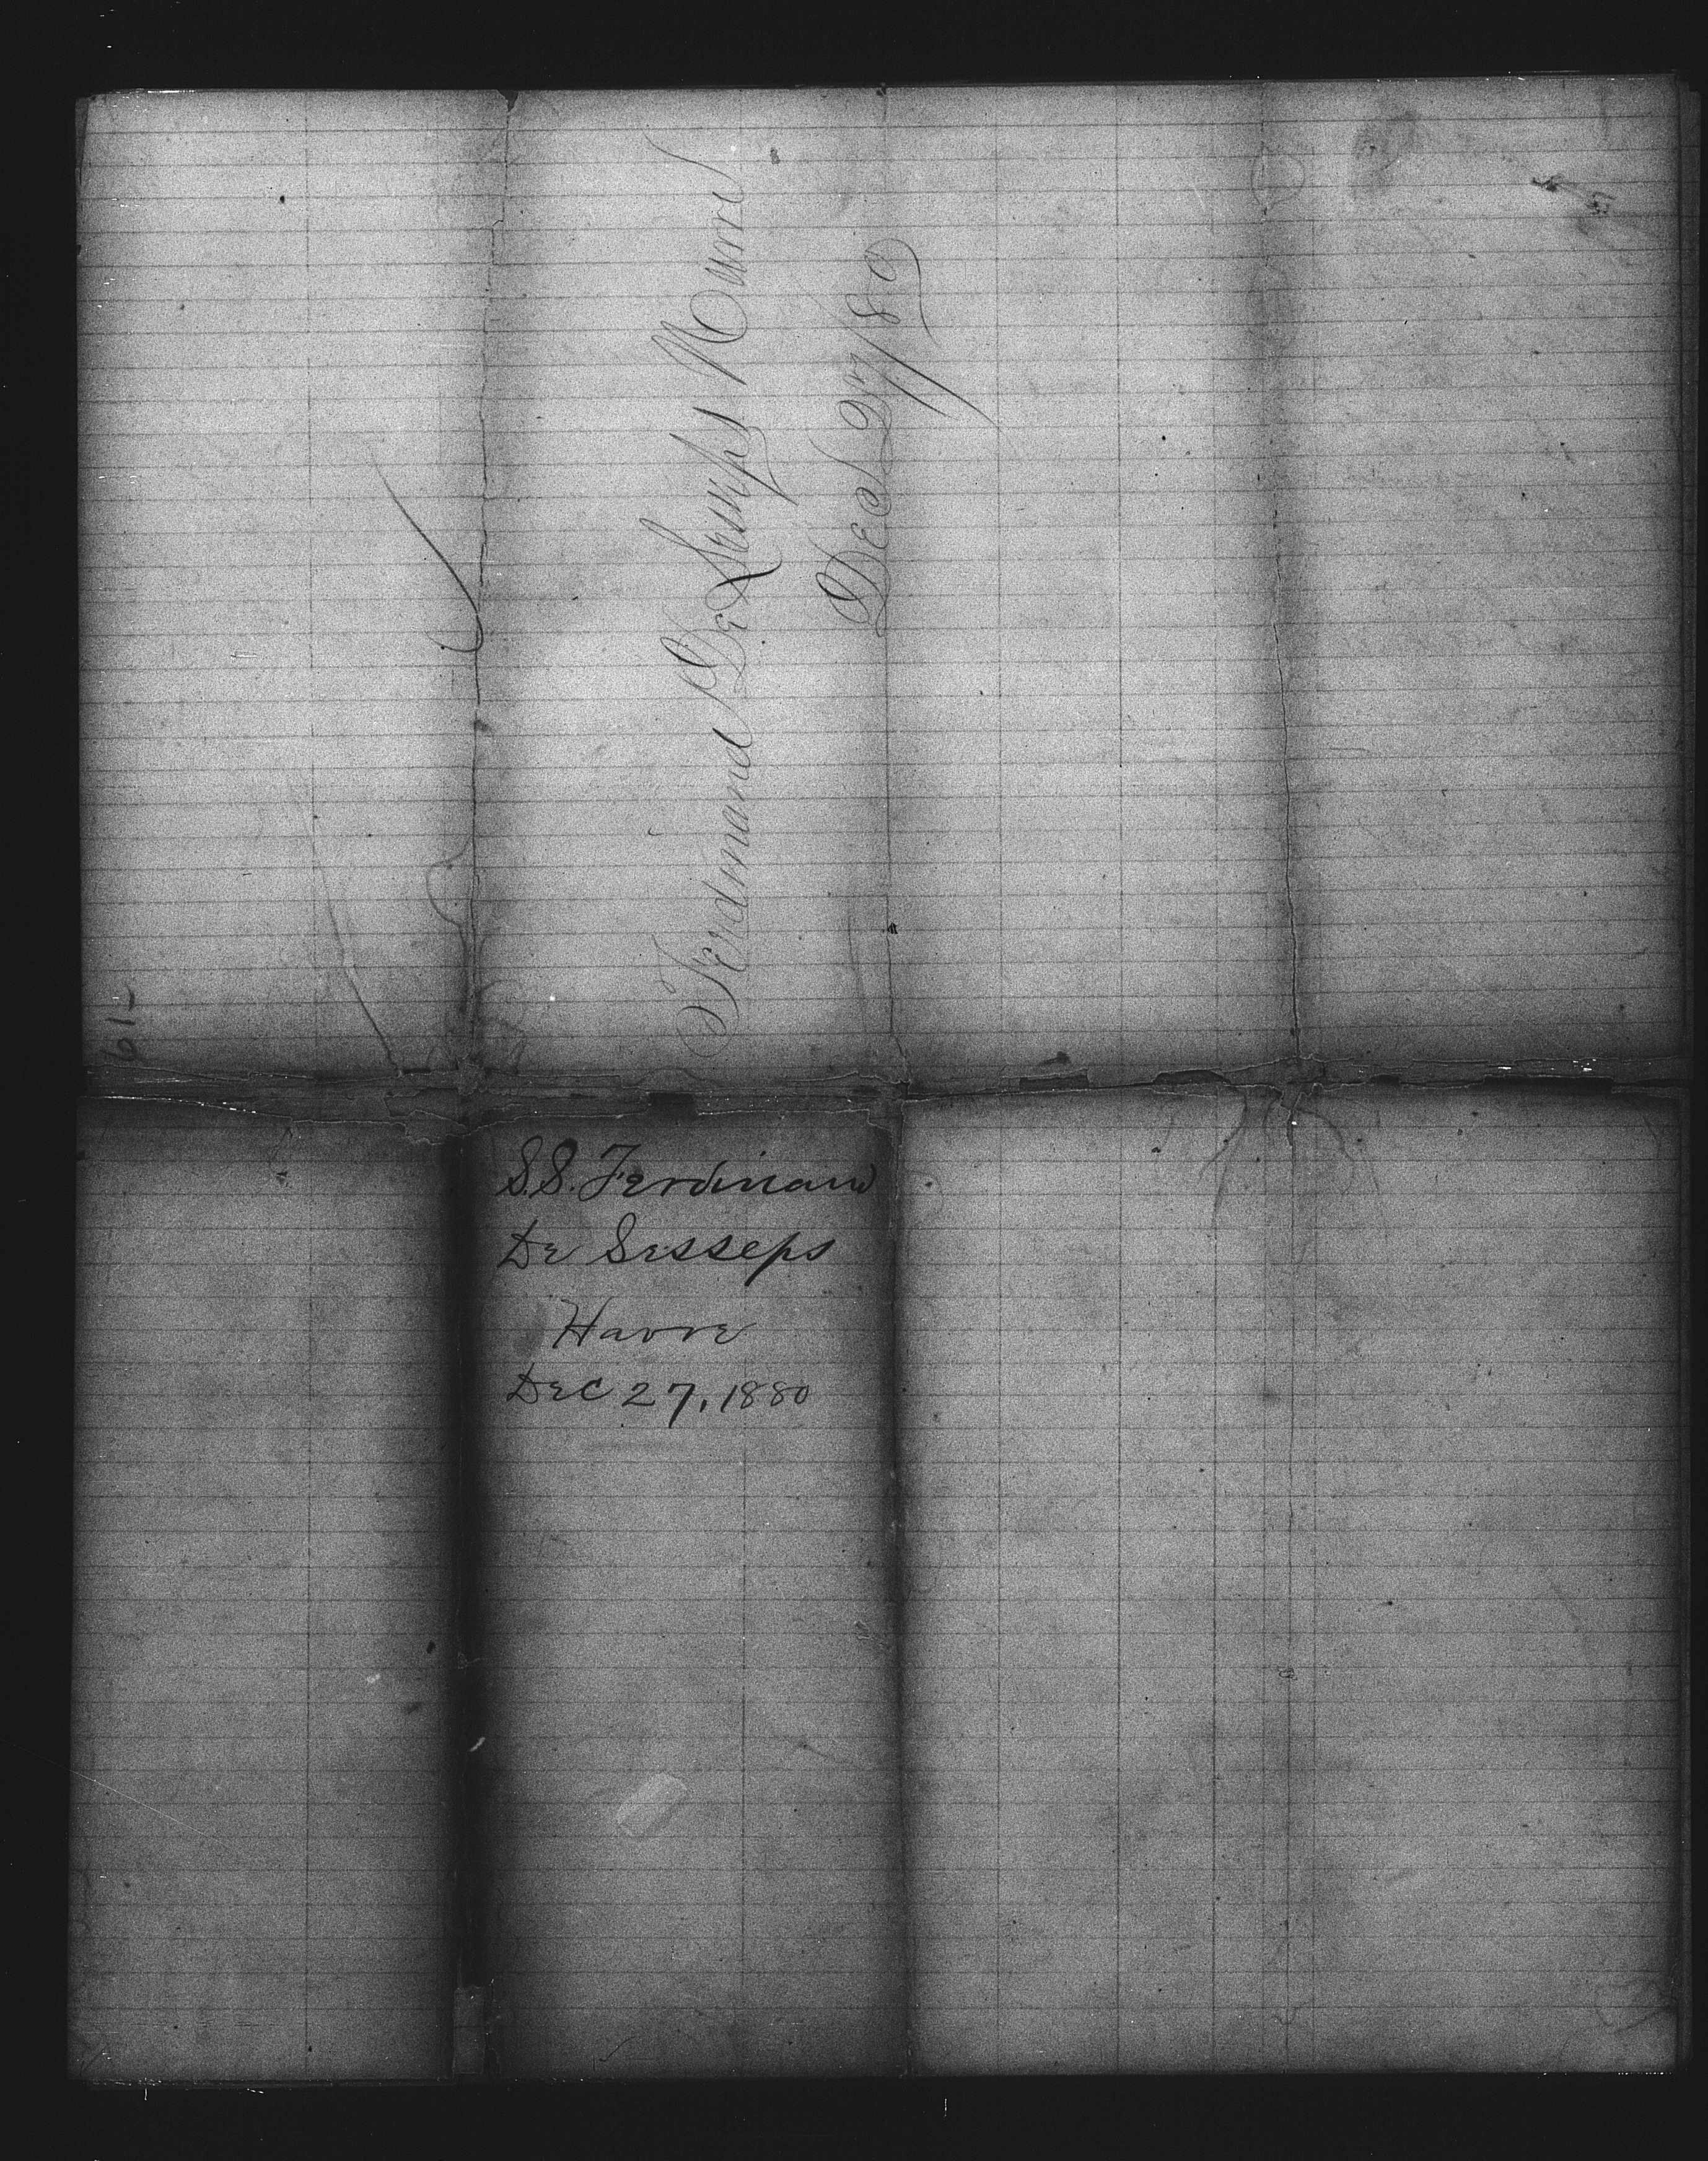 Ferdinand De Lesseps Havre
Dec 27/80
61-
S.S. Ferdinand
De Lesseps
Havre
Dec 27, 1880